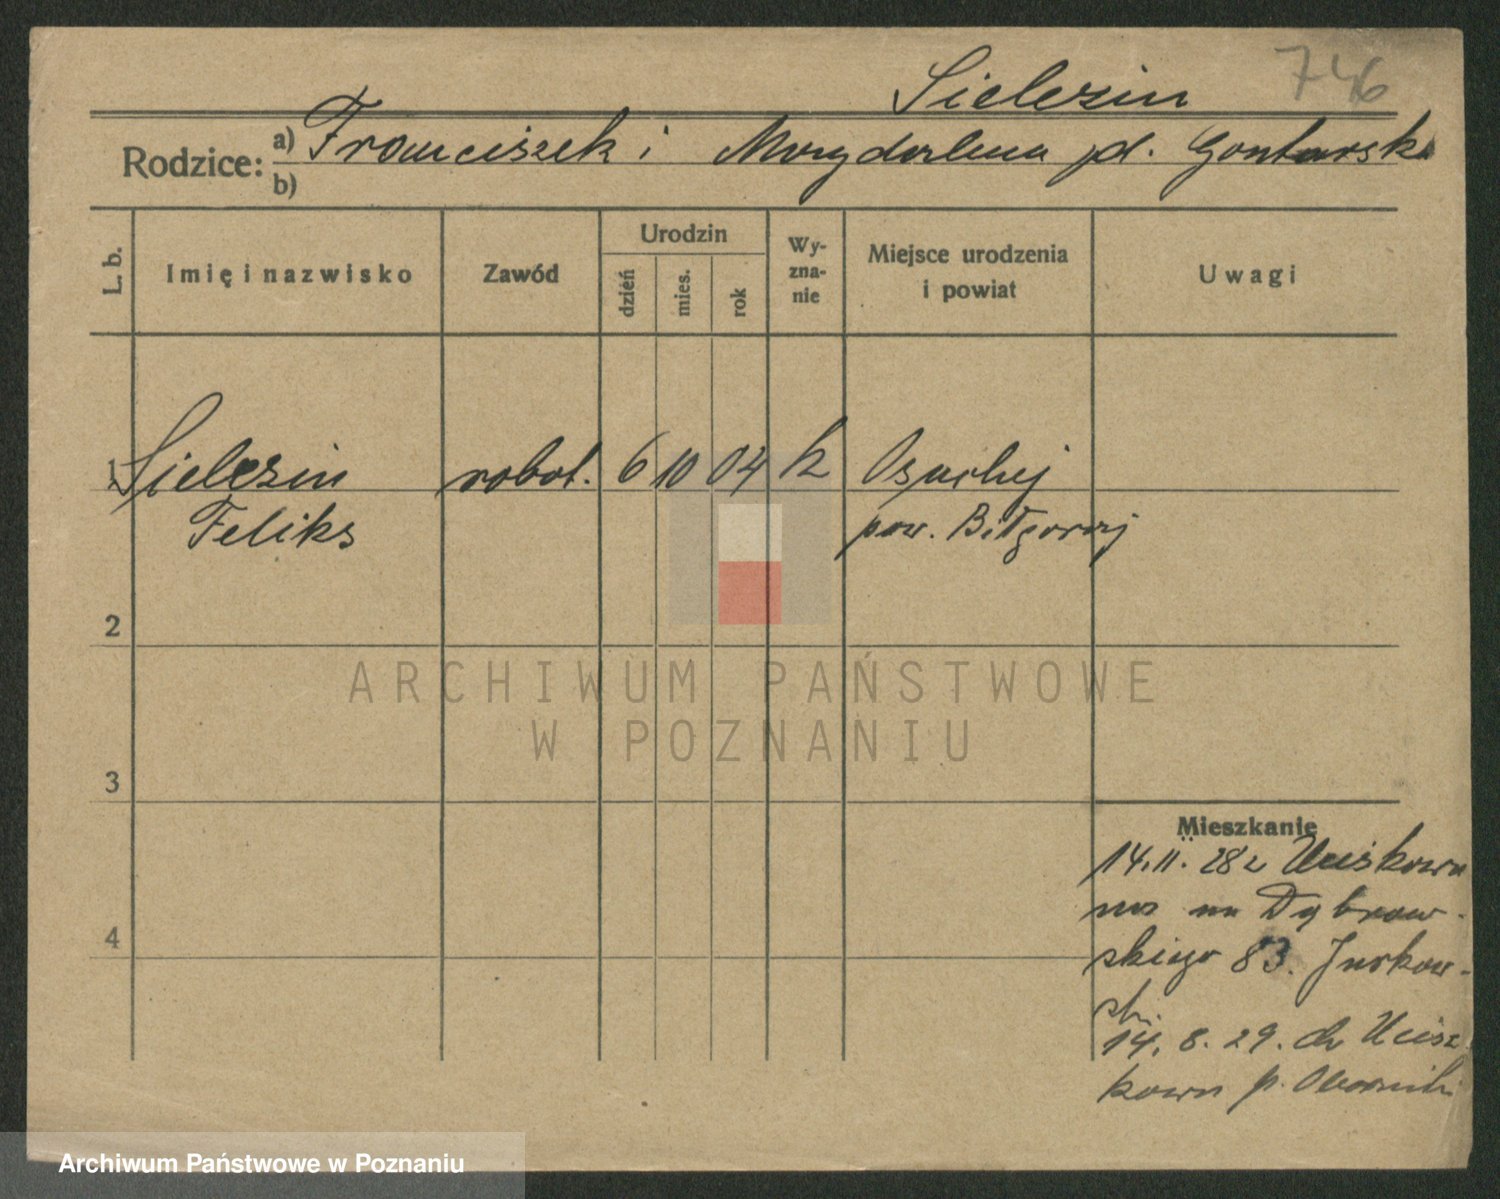 Sielezin 746
Rodzice: a) Franciszek i Magdalena pl. Gontarska
b)
L. b. Imię i nazwisko Zawód Urodzin dzień mies. rok Wy-zna-nie Miejsce urodzenia i powiat Uwagi
1 Sielezin robot. 6 10 04 k Osuchy
Feliks pow. Biłgoraj
2
3
4
Mieszkanie
14.11.28 z Uciskowa
na ul. Dąbrow-
skiego 83. Jurkow-
ski.
14. 8. 29. do Ucisz-
kowa p. Oborniki
ARCHIWUM PAŃSTWOWE
W POZNANIU
Archiwum Państwowe w Poznaniu